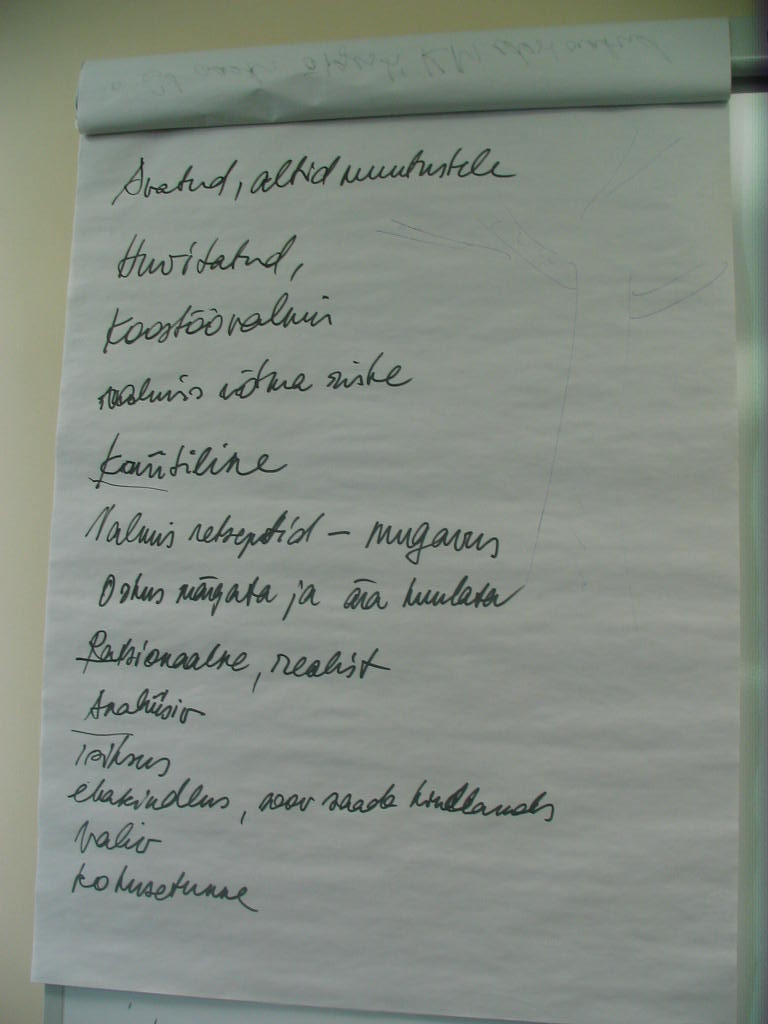 Avatud, altid muutustele
Huvitatud,
Koostöövalmis
valmis võtma riske
Kaootiline
Valmis retseptid – mugavus
Oskus märgata ja ära kuulata
Ratsionaalne, realist
Analüüsiv
Isiksus
ebakindlus, soov saada kindlamaks
Valiv
kohusetunne